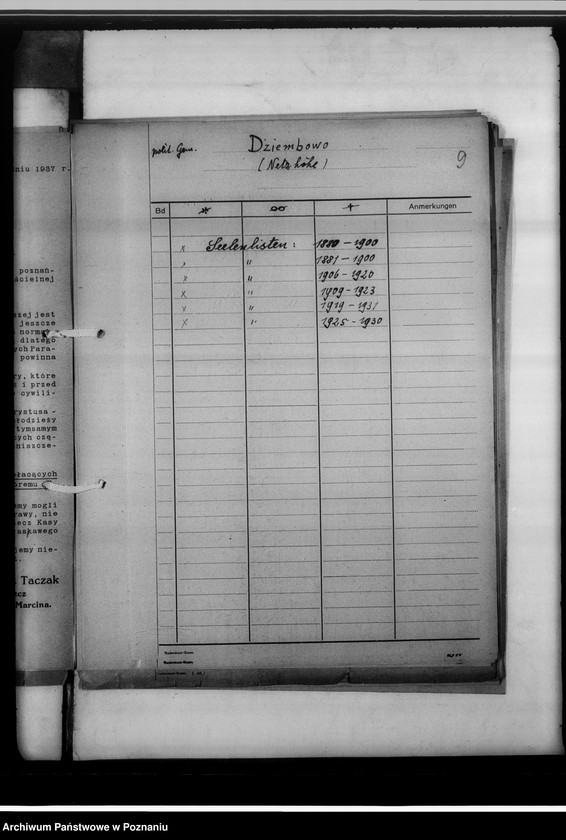 niu 1937 r.
poznań-
ścielnej
szej jest
jeszcze
normy
dlatego
powinna
ry, które
i przed
cywili-
rystusa -
łodzieży
tymsamym
niszcze-
łacących
oremu
emy mogli
rawy, nie
ecz Kasy
askawego
jemy nie-
. Taczak
Marcina.
polit. Gem.
Dziembowo
(Netzhöhe)
9
Bd * ∞ + Anmerkungen
x Seelenlisten: 1880-1900
x " 1881-1900
x " 1906-1920
x " 1909-1923
x " 1919-1931
x " 1925-1930
Archiwum Państwowe w Poznaniu